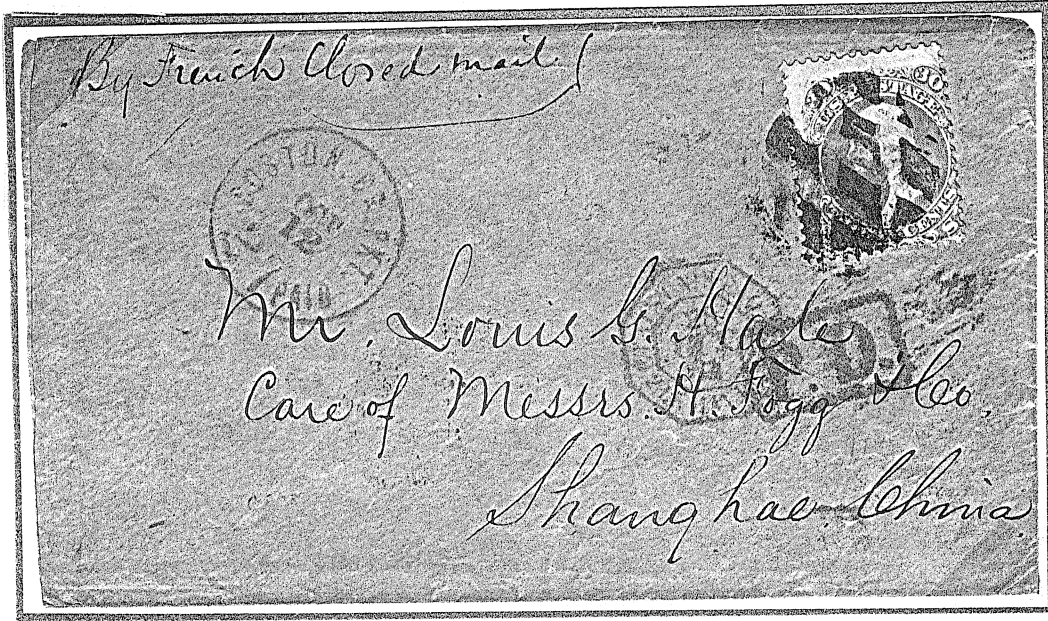 By French Closed mail
BOSTON BR. PKT.
12
PAID
30
P.D.
Mr. Louis G. Hale
Care of Messrs. H. Fogg & Co.
Shanghae China